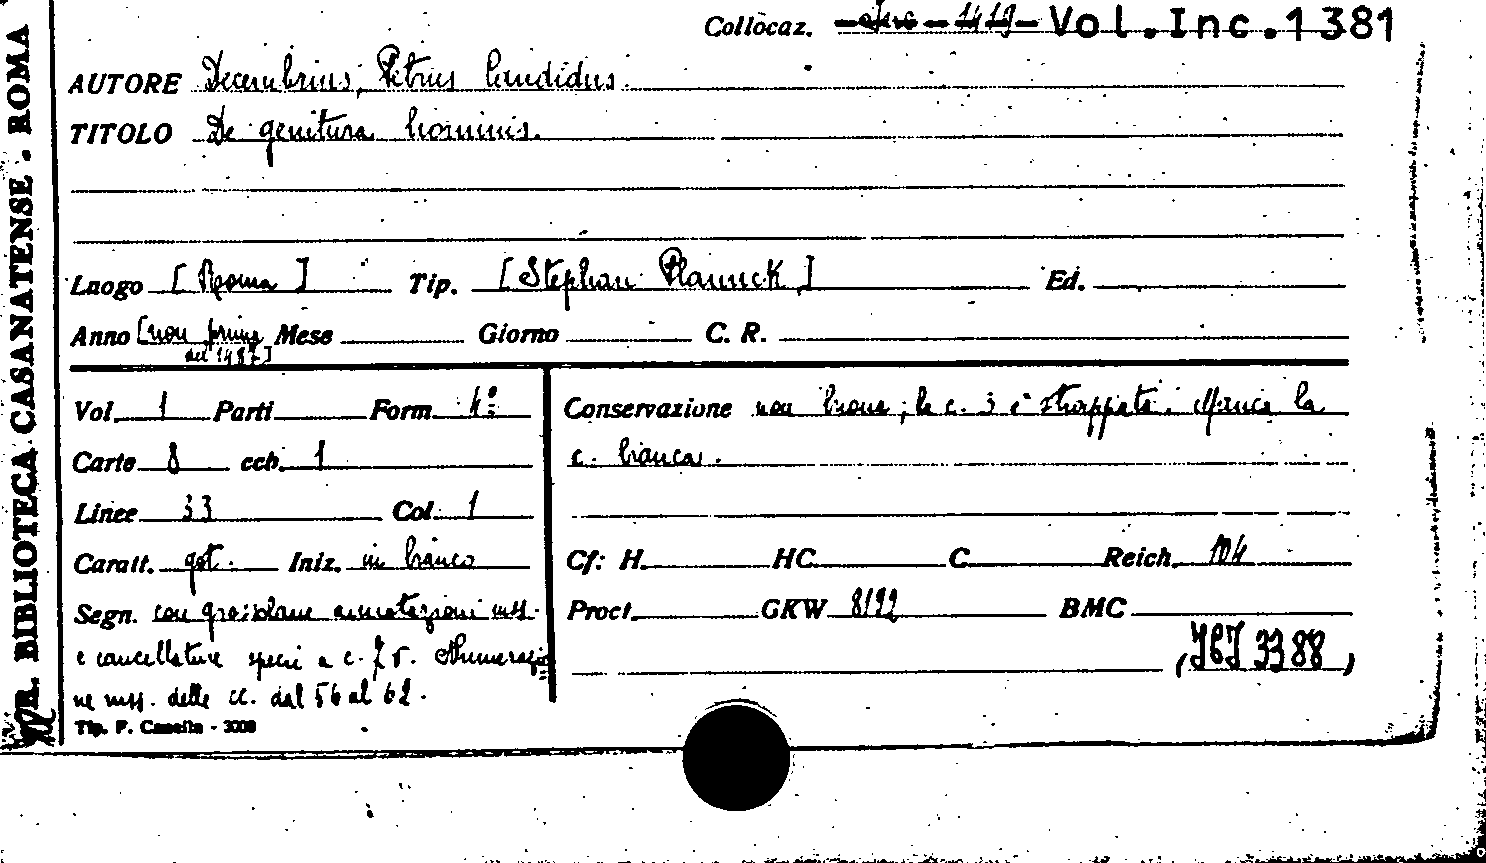 Collocaz. Inc. 1419 Vol.Inc.1381
AUTORE Decembrius, Petrus Candidus.
TITOLO De genitura hominis.
Luogo [Roma] Tip. [Stephan Plannck] Ed.
Anno [non prima Mese Giorno C. R.
del 1487]
Vol. 1 Parti Form. 4º
Carte 8 ccb. 1
Linee 33 Col. 1
Caratt. got. Iniz. in bianco
Segn. con grossolane annotazioni mss.
e cancellature specie a c. 7 r. Numerazio
ne mss. delle cc. dal 56 al 62.
Conservazione non buona; la c. 3 è strappata. Manca la
c. bianca.
Cf: H. HC. C. Reich. 104
Proct. GKW 8122 BMC
(IGI 3388)
Tip. F. Canella - 3008
R. BIBLIOTECA CASANATENSE - ROMA